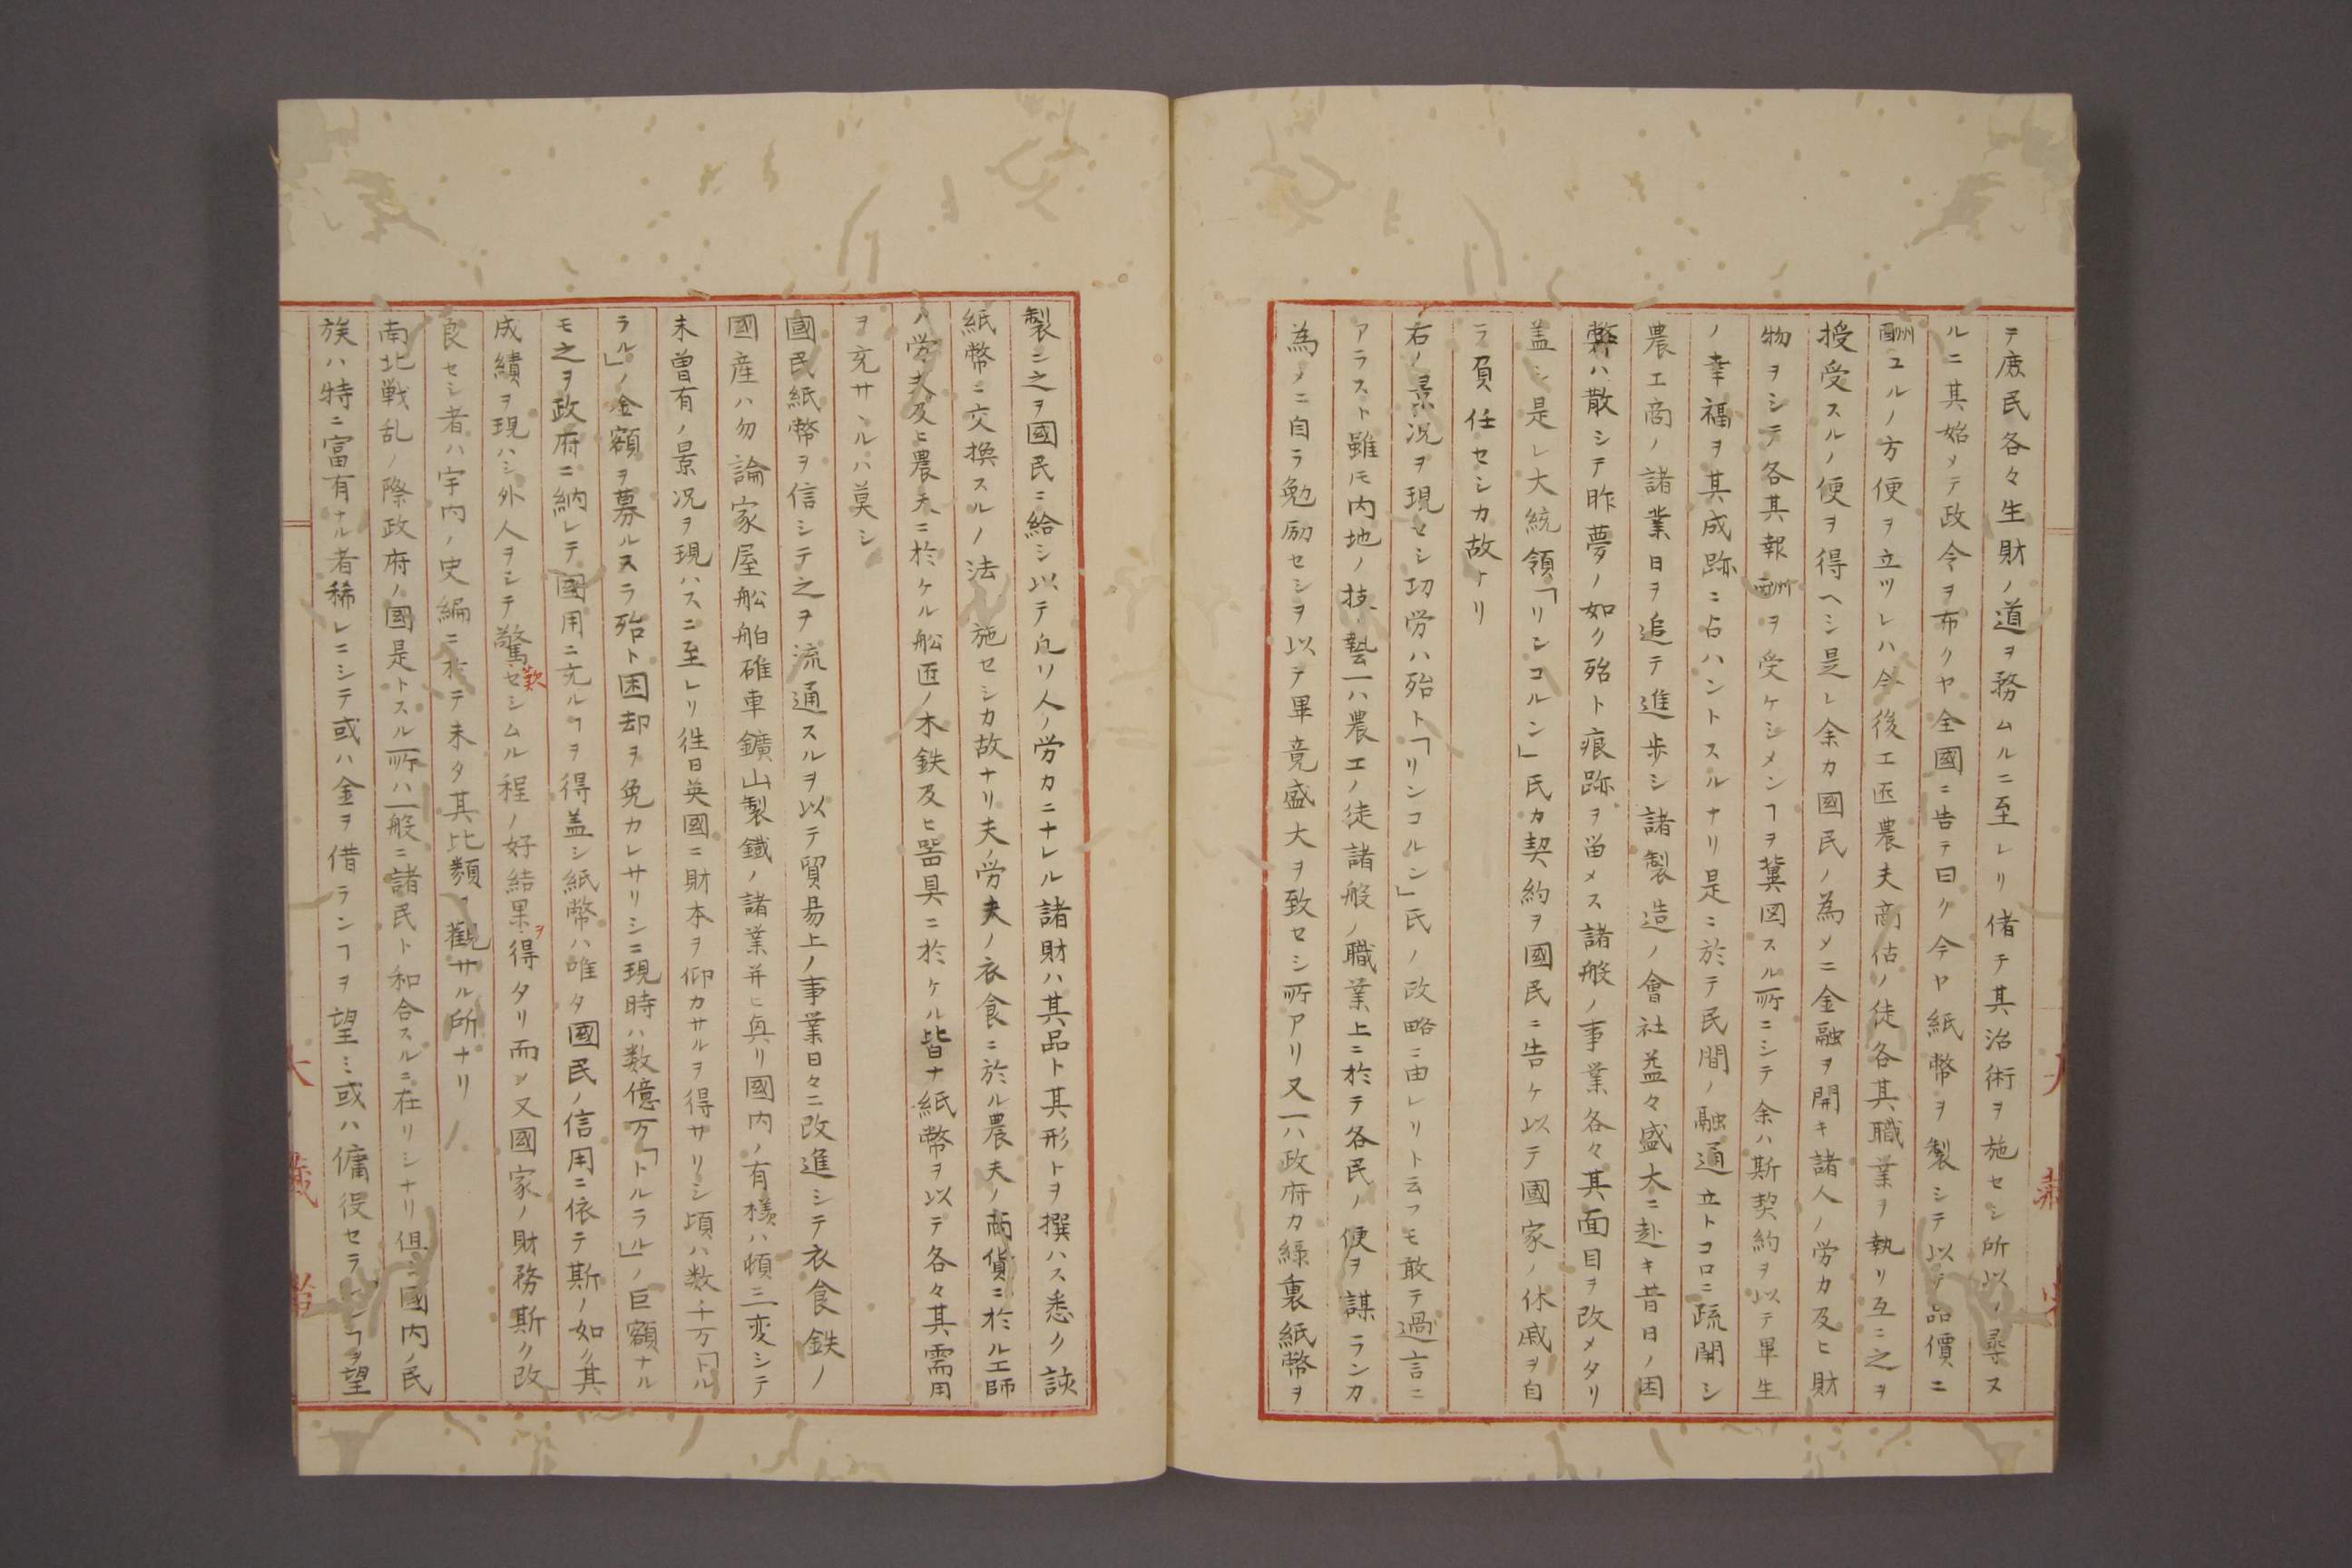 テ庶民各々生財ノ道ヲ務ムルニ至レリ偖テ其治術ヲ施セシ所以ノ尋ス
ルニ其始メテ政令ヲ布クヤ全國ニ告テ曰ク今ヤ紙幣ヲ製シテ以テ品價ニ
酬ユルノ方便ヲ立ツレハ今後工匠農夫商估ノ徒各其職業ヲ執リ互ニ之ヲ
授受スルノ便ヲ得ヘシ是レ余カ國民ノ為メニ金融ヲ開キ諸人ノ労力及ヒ財
物ヲシテ各其報酬ヲ受ケシメンヿヲ冀図スル所ニシテ余ハ斯契約ヲ以テ畢生
ノ幸福ヲ其成跡ニ占ハントスルナリ是ニ於テ民間ノ融通立トコロニ疏開シ
農工商ノ諸業日ヲ追テ進歩シ諸製造ノ會社益々盛大ニ赴キ昔日ノ困
弊ハ散シテ昨夢ノ如ク殆ト痕跡ヲ留メス諸般ノ事業各々其面目ヲ改メタリ
盖シ是レ大統領「リンコルン」氏カ契約ヲ國民ニ告ケ以テ國家ノ休戚ヲ自
ラ負任セシカ故ナリ
右ノ景況ヲ現セシ功労ハ殆ト「リンコルン」氏ノ政略ニ由レリト云フモ敢テ過言ニ
アラスト雖モ内地ノ技藝一ハ農工ノ徒諸般ノ職業上ニ於テ各民ノ便ヲ謀ランカ
為メニ自ラ勉励セシヲ以テ畢竟盛大ヲ致セシ所アリ又一ハ政府カ綠裏紙幣ヲ
製シ之ヲ國民ニ給シ以テ凡リ人ノ労力ニナレル諸財ハ其品ト其形トヲ撰ハス悉ク該
紙幣ニ交換スルノ法施セシカ故ナリ夫ノ労夫ノ衣食ニ於ル農夫ノ商貨ニ於ル工師
ノ労夫及ヒ農夫ニ於ケル舩匠ノ木鉄及ヒ器具ニ於ケル皆ナ紙幣ヲ以テ各々其需用
ヲ充サヽルハ莫シ
國民紙幣ヲ信シテ之ヲ流通スルヲ以テ貿易上ノ事業日々ニ改進シテ衣食鉄ノ
國産ハ勿論家屋舩舶碓車鑛山製鐵ノ諸業并ヒ與リ國内ノ有様ハ頓三変シテ
未曽有ノ景况ヲ現ハスニ至レリ徃日英國ニ財本ヲ仰カサルヲ得サリシ頃ハ数千万「トル
ラル」ノ金額ヲ募ルスラ殆ト困却ヲ免カレサリシニ現時ハ数億万「トルラル」ノ巨額ナル
モ之ヲ政府ニ納レテ國用ニ充ルヿヲ得盖シ紙幣ハ唯タ國民ノ信用ニ依テ斯ノ如ク其
成績ヲ現ハシ外人ヲシテ驚歎セシムル程ノ好結果ヲ得タリ而シ又國家ノ財務斯ク改
良セシ者ハ宇内ノ史編ニ於テ未タ其比類ヲ觀サル所ナリ
南北戦乱ノ際政府ノ國是トスル所ハ一般ニ諸民ト和合スルニ在リシナリ但シ國内ノ民
族ハ特ニ富有ナル者稀レニシテ或ハ金ヲ借ランヿヲ望ミ或ハ傭役セラレンヿヲ望